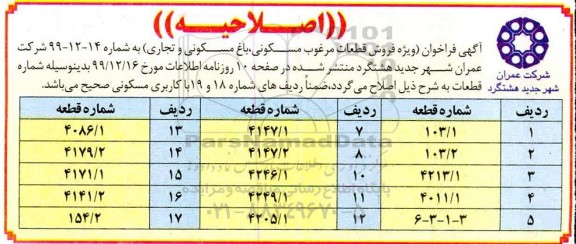 ((اصلاحیه))
آگهی فراخوان (ویژه فروش قطعات مرغوب مسکونی،باغ مسکونی و تجاری) به شماره ۱۴-۱۲-۹۹ شرکت
عمران شهر جدید هشتگرد منتشر شده در صفحه ۱۰ روزنامه اطلاعات مورخ ۹۹/۱۲/۱۶ بدینوسیله شماره
قطعات به شرح ذیل اصلاح می‌گردد،ضمناً ردیف های شماره ۱۸ و ۱۹ با کاربری مسکونی صحیح می‌باشد.
شرکت عمران
شهر جدید هشتگرد
ردیف شماره قطعه ردیف شماره قطعه ردیف شماره قطعه
۱ ۱۰۳/۱ ۷ ۴۱۴۷/۱ ۱۳ ۴۰۸۶/۱
۲ ۱۰۳/۲ ۸ ۴۱۴۷/۲ ۱۴ ۴۱۷۹/۲
۳ ۴۲۱۳/۱ ۱۰ ۴۲۴۶/۱ ۱۵ ۴۱۷۱/۱
۴ ۴۰۱۱/۱ ۱۱ ۴۲۴۹/۱ ۱۶ ۴۱۴۱/۲
۵ ۶-۳-۱-۳ ۱۲ ۴۲۰۵/۱ ۱۷ ۱۵۴/۲
ParsNamadData
پایگاه اطلاع رسانی مناقصه و مزایده
۰۲۱-۸۸۳۴۹۶۷۰